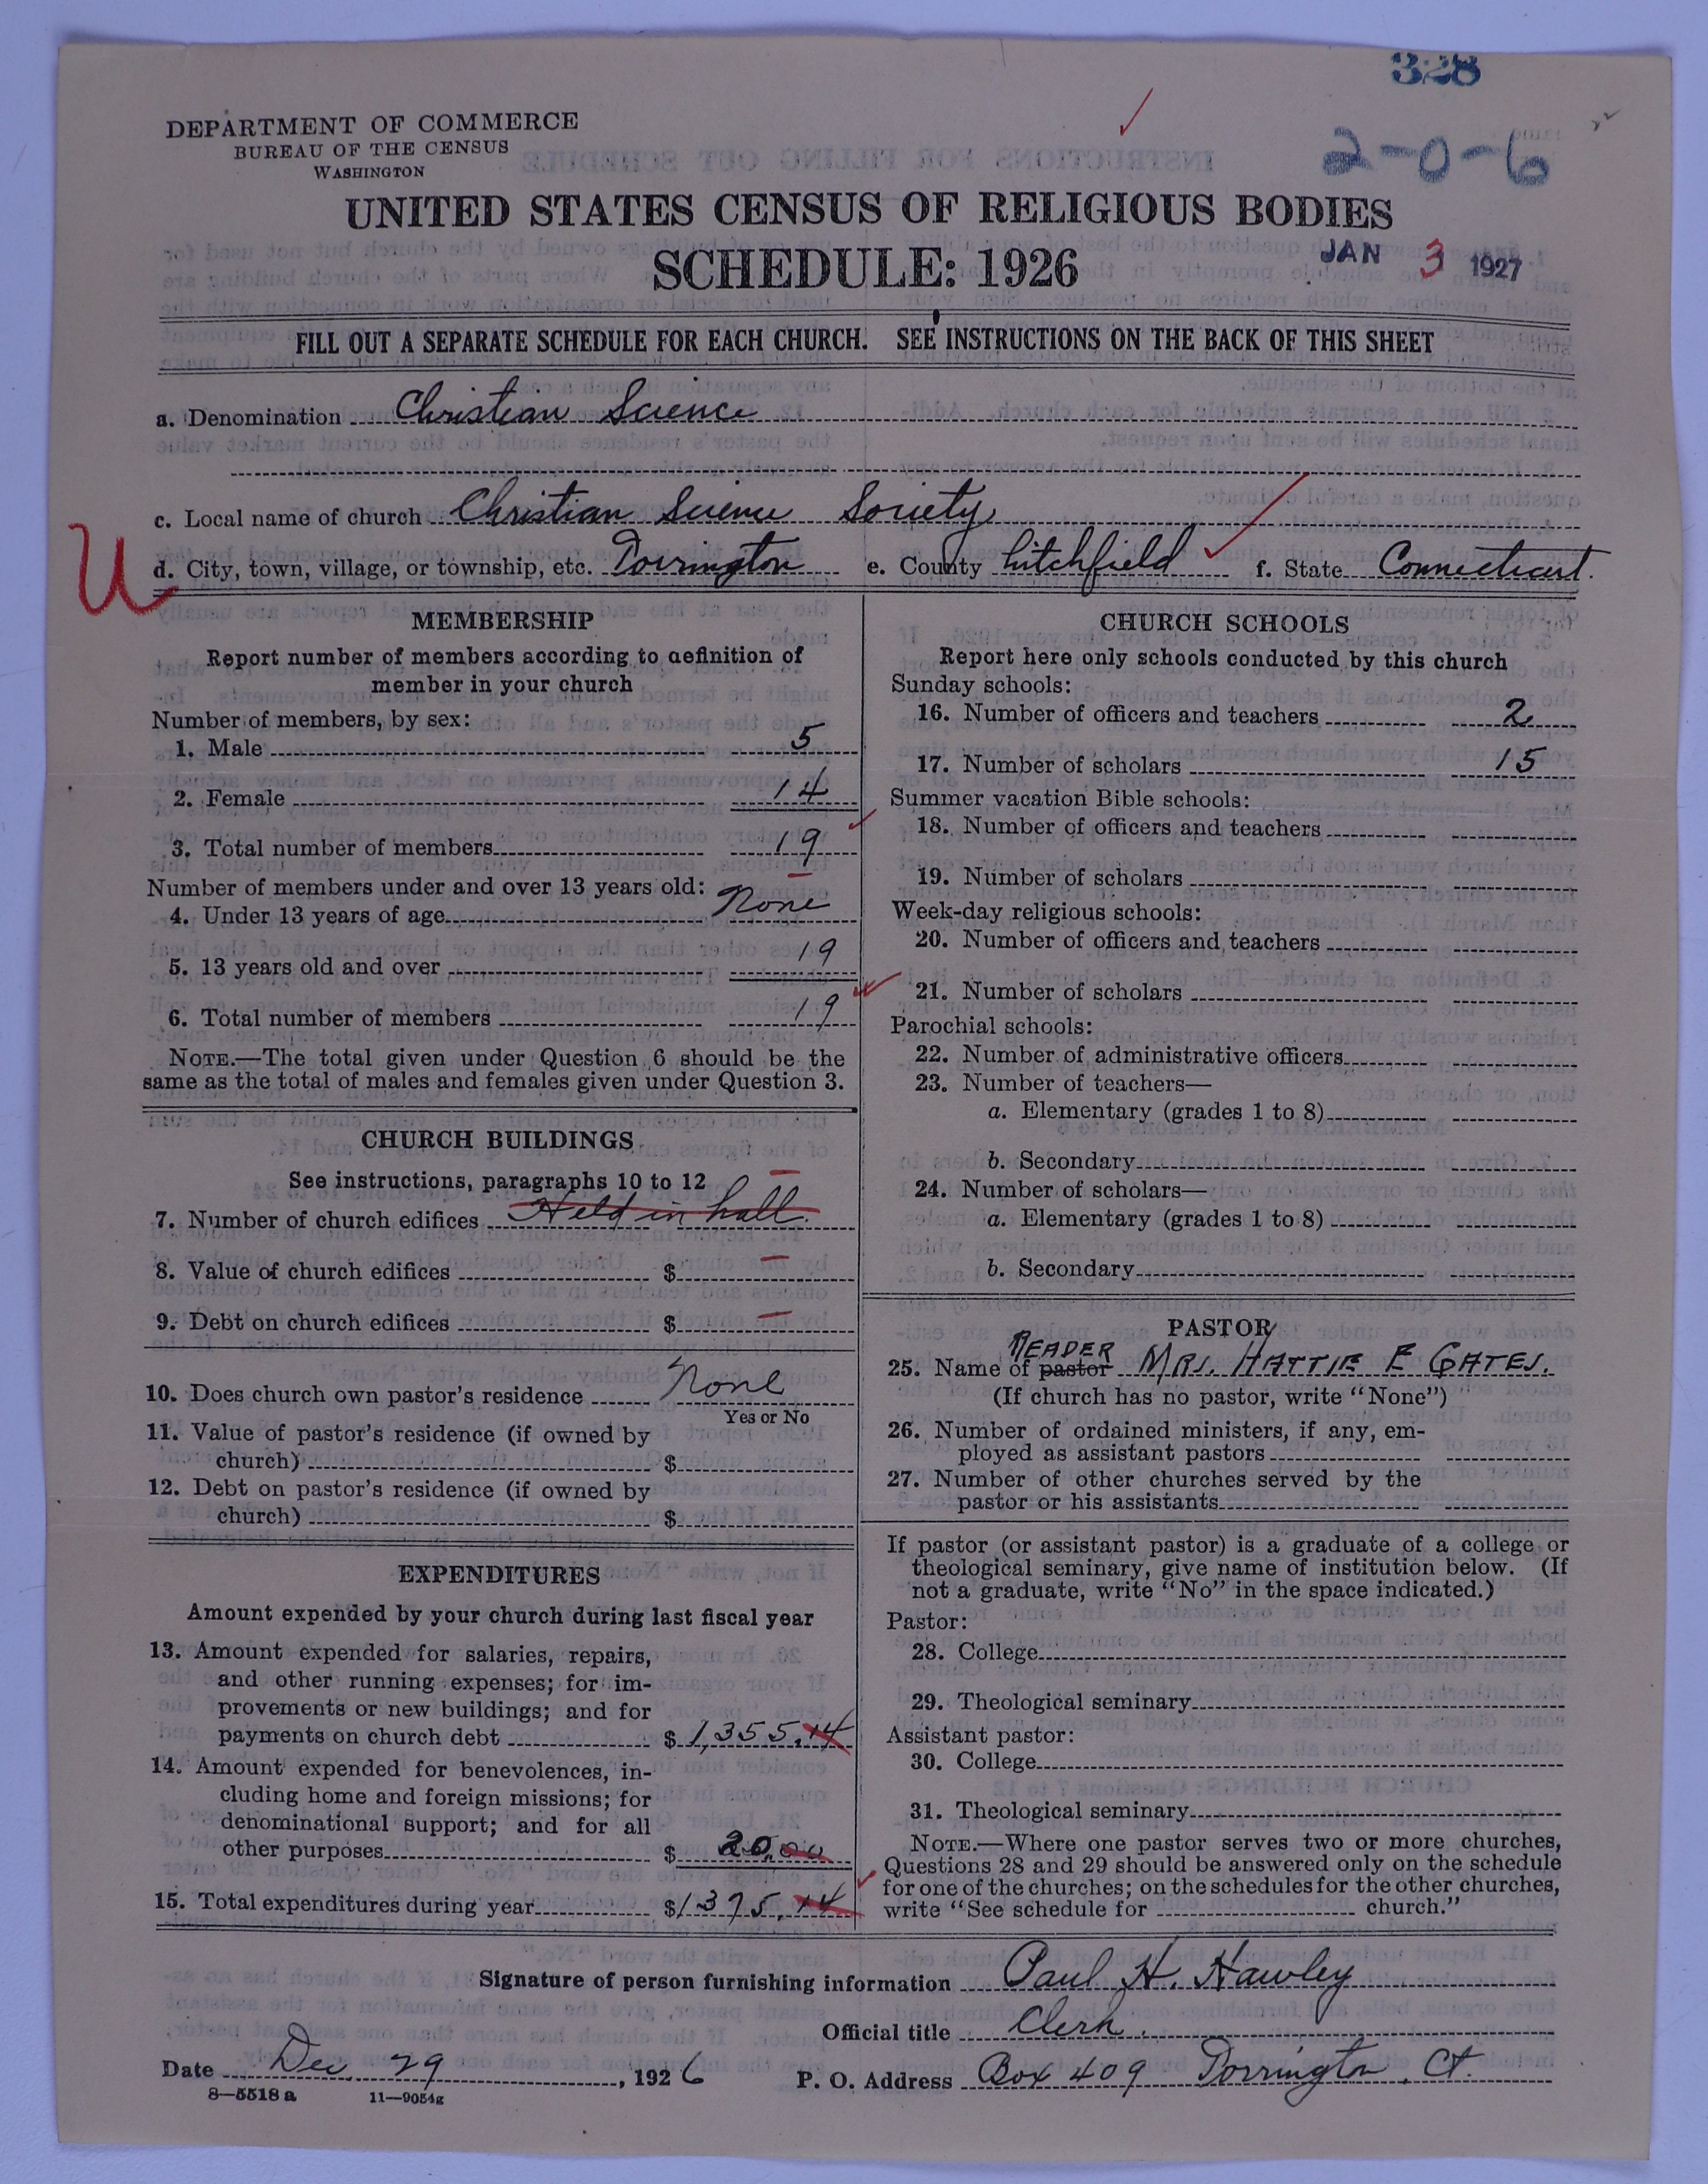 328
DEPARTMENT OF COMMERCE
BUREAU OF THE CENSUS
WASHINGTON
2-0-6
UNITED STATES CENSUS OF RELIGIOUS BODIES
SCHEDULE: 1926
JAN 3 1927
FILL OUT A SEPARATE SCHEDULE FOR EACH CHURCH. SEE INSTRUCTIONS ON THE BACK OF THIS SHEET
a. Denomination Christian Science
c. Local name of church Christian Science Society
U
d. City, town, village, or township, etc. Torrington e. County Litchfield f. State Connecticut.
MEMBERSHIP
Report number of members according to definition of
member in your church
Number of members, by sex:
1. Male 5
2. Female 14
3. Total number of members 19
Number of members under and over 13 years old:
4. Under 13 years of age None
5. 13 years old and over 19
6. Total number of members 19
NOTE.—The total given under Question 6 should be the
same as the total of males and females given under Question 3.
CHURCH BUILDINGS
See instructions, paragraphs 10 to 12
7. Number of church edifices Held in hall.
8. Value of church edifices $
9. Debt on church edifices $
10. Does church own pastor's residence None
Yes or No
11. Value of pastor's residence (if owned by
church) $
12. Debt on pastor's residence (if owned by
church) $
EXPENDITURES
Amount expended by your church during last fiscal year
13. Amount expended for salaries, repairs,
and other running expenses; for im-
provements or new buildings; and for
payments on church debt $ 1,355.14
14. Amount expended for benevolences, in-
cluding home and foreign missions; for
denominational support; and for all
other purposes $ 20.00
15. Total expenditures during year $1375.14
CHURCH SCHOOLS
Report here only schools conducted by this church
Sunday schools:
16. Number of officers and teachers 2
17. Number of scholars 15
Summer vacation Bible schools:
18. Number of officers and teachers
19. Number of scholars
Week-day religious schools:
20. Number of officers and teachers
21. Number of scholars
Parochial schools:
22. Number of administrative officers
23. Number of teachers—
a. Elementary (grades 1 to 8)
b. Secondary
24. Number of scholars—
a. Elementary (grades 1 to 8)
b. Secondary
PASTOR
READER
25. Name of pastor MRS. HATTIE E GATES.
(If church has no pastor, write "None")
26. Number of ordained ministers, if any, em-
ployed as assistant pastors
27. Number of other churches served by the
pastor or his assistants
If pastor (or assistant pastor) is a graduate of a college or
theological seminary, give name of institution below. (If
not a graduate, write "No" in the space indicated.)
Pastor:
28. College
29. Theological seminary
Assistant pastor:
30. College
31. Theological seminary
NOTE.—Where one pastor serves two or more churches,
Questions 28 and 29 should be answered only on the schedule
for one of the churches; on the schedules for the other churches,
write "See schedule for church."
Signature of person furnishing information Paul H. Hawley
Official title Clerk.
Date Dec 29, 1926 P. O. Address Box 409 Torrington, Ct.
8—5518 a 11—9054g